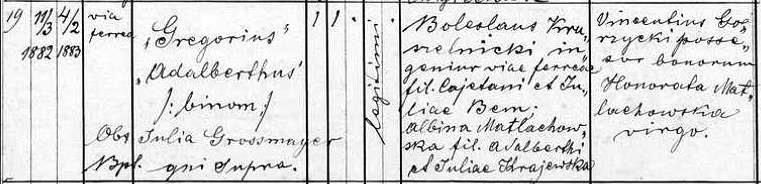 19
11/3 1882
4/2 1883
via ferrea
„Gregorius"
„Adalberthus'
/: binom :/
Obs Julia Grossmayer
Bpl. qui supra.
1 1 .
legitimi.
Boleslaus Kru-
szelnicki in-
geniur viae ferreae
fil. Cajetani et Ju-
liae Bem;
Albina Matlachow-
ska fil. Adalberthi
et Juliae Krajewska
Vincentius Go-
rzycki posse-
sor bonorum
Honorata Mat-
lachowska
virgo.